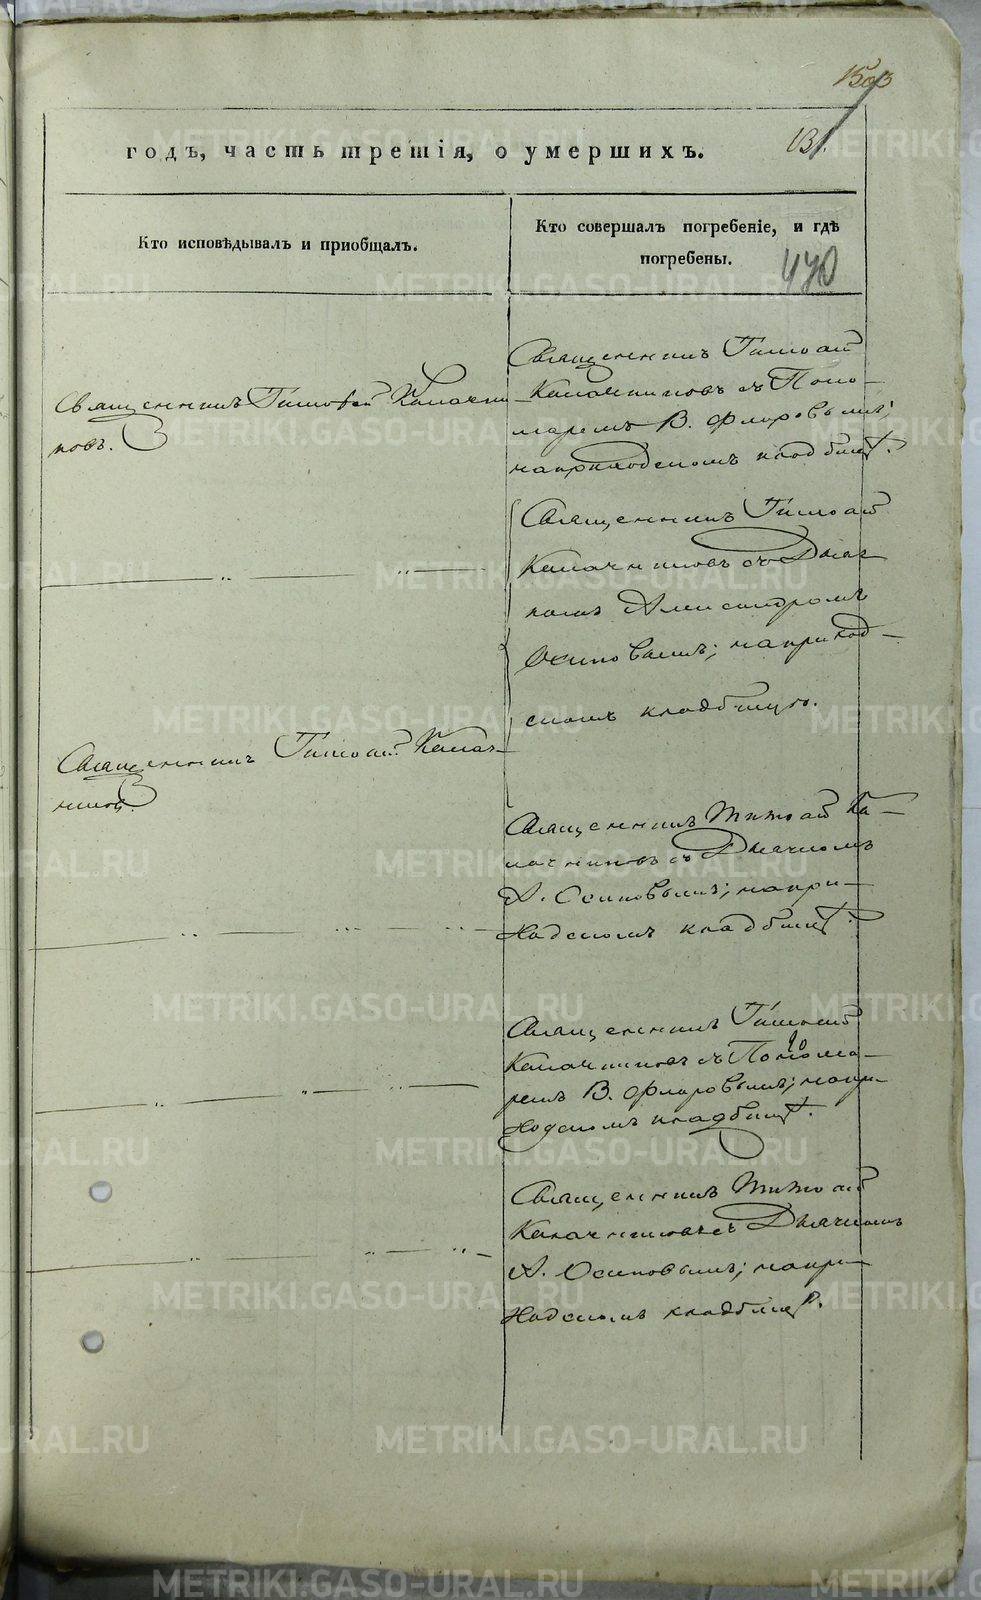 131.
годъ, часть третія, о умершихъ.
Кто исповѣдывалъ и приобщалъ.
Кто совершалъ погребеніе, и гдѣ
погребены.
470
Священникъ Тимоѳей Калачни
ковъ.
Священникъ Тимоѳей
Калачниковъ съ Поно-
маремъ В. Флоровымъ;
на приходскомъ кладбищѣ.
Священникъ Тимоѳей
Калачниковъ съ Дьяч
комъ Александромъ
Осиповымъ; на приход-
скомъ кладбищѣ.
Священникъ Тимоѳей Калач-
никовъ.
Священникъ Тимоѳей Ка-
лачниковъ съ Дьячкомъ
А. Осиповымъ; на при-
ходскомъ кладбищѣ.
Священникъ Тимоѳей
Калачниковъ съ Понома-
ремъ В. Флоровымъ; на при-
ходскомъ кладбищѣ.
Священникъ Тимоѳей
Калачниковъ съ Дьячкомъ
А. Осиповымъ; на при-
ходскомъ кладбищѣ.
METRIKI.GASO-URAL.RU